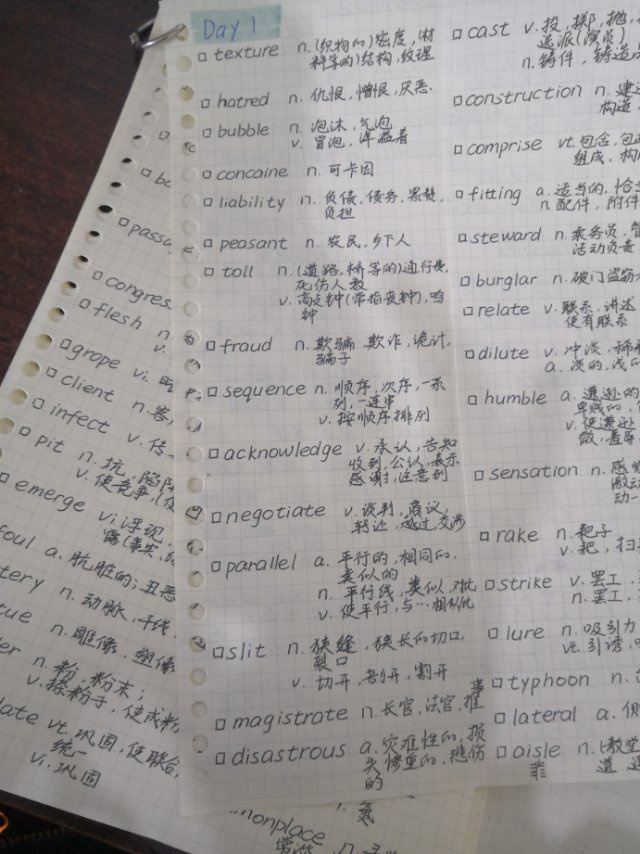 Day 1
□ texture n.(织物的)密度,(材
料等的)结构,纹理
□ hatred n. 仇恨,憎恨,厌恶.
□ bubble n. 泡沫,气泡
v. 冒泡,洋溢着
□ concaine n. 可卡因
□ liability n. 负债,债务,累赘,
负担
□ peasant n. 农民,乡下人
□ toll n.(道路,桥等的)通行费,
死伤人数
v. 敲钟(常指丧钟),鸣
钟
□ fraud n. 欺骗,欺诈,诡计,
骗子
□ sequence n. 顺序,次序,一系
列,一连串
v. 按顺序排列
□ acknowledge v. 承认,告知
收到,公认,表示
感谢,注意到
□ negotiate v. 谈判,商议,
转让,越过,交涉
□ parallel a. 平行的,相同的,
类似的
n. 平行线,类似,对比
v. 使平行,与…相似/比
□ slit n. 狭缝,狭长的切口,
裂口
v. 切开,割开
□ magistrate n. 长官,法官,推
事
□ disastrous a. 灾难性的,损
失惨重的,悲伤
的
□ cast v. 投,掷,抛,
选派(演员)
n. 铸件,铸造
□ construction n. 建
构造
□ comprise vt. 包含,包
组成,构
□ fitting a. 适当的,恰
n. 配件,附件
□ steward n. 乘务员,
活动负责
□ burglar n. 破门盗窃
□ relate v. 联系,讲述
使有联系
□ dilute v. 冲淡,稀
a. 淡的,
□ humble a. 谦逊的
卑贱的,
v. 使谦逊
□ sensation n. 感
激动
动一
□ rake n. 耙子
v. 耙,扫
□ strike v. 罢工,
n. 罢工,
□ lure n. 吸引力
vt. 引诱,
□ typhoon n.
□ lateral a. 侧
□ aisle n.(教堂
道
□ passa
congres
□ flesh n.
v.
□ grope vi.
□ client n. 客,
□ infect v. 传
□ pit n. 坑,陷阱
v. 使竞争
□ emerge vi. 浮现,
露(事实,
foul a. 肮脏的;丑恶
tery n. 动脉,干线,
tue n. 雕像,塑像
der n. 粉,粉末;
v. 搽粉于,使成粉
date vt. 巩固,使联合,
统一
vi. 巩固
monplace